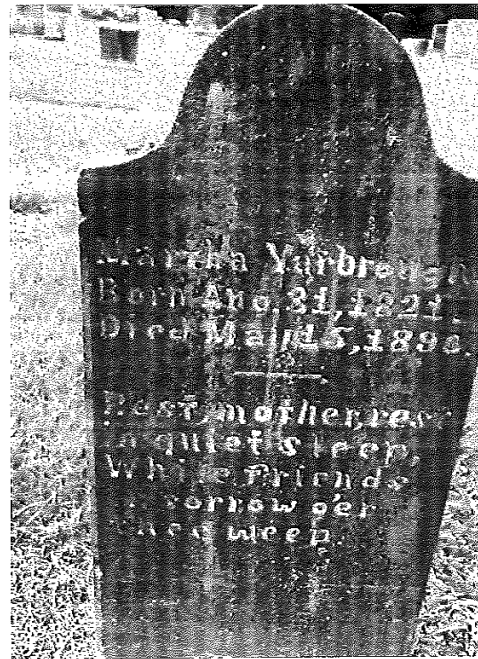 Martha Yarbrough
Born Aug. 31, 1821.
Died Ma 15, 189
Rest, mother, rest
in quiet sleep,
While Friends
in sorrow o'er
thee weep.